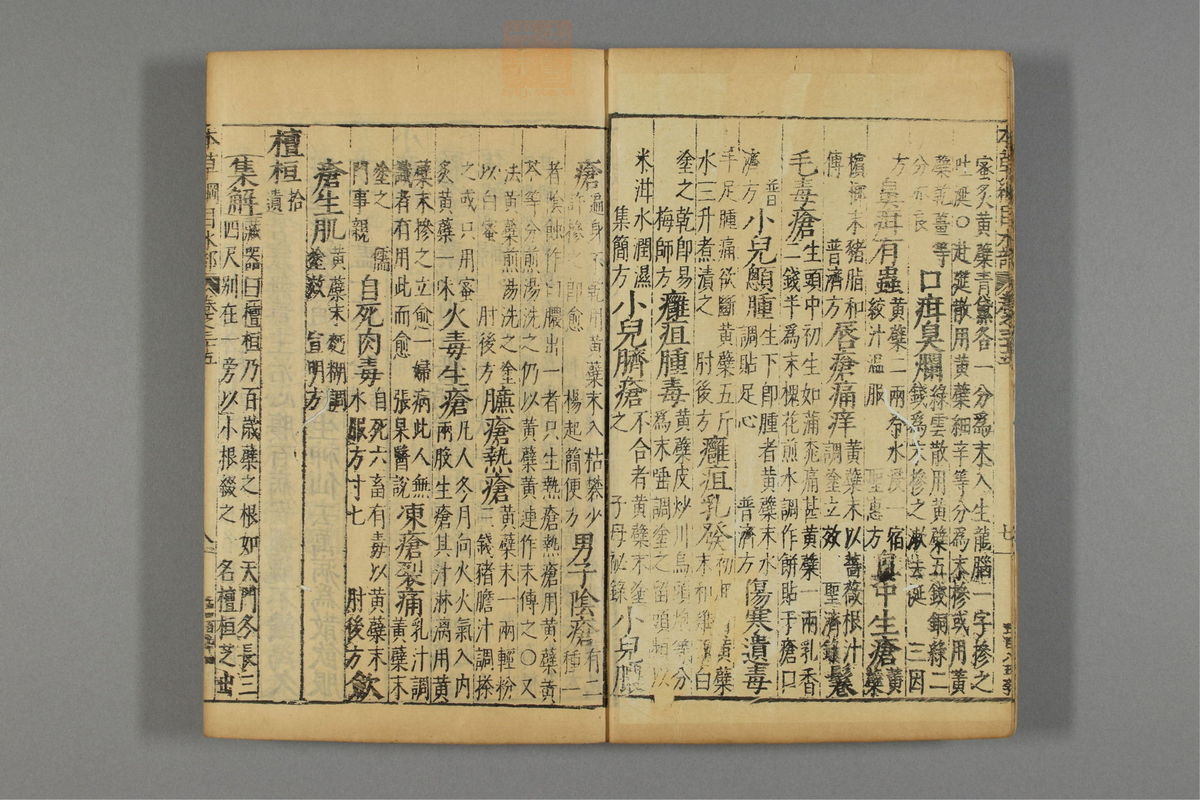 本草綱目木部 卷之三十五 七
密炙黃蘗青黛各一分為末入生龍腦一字摻之
吐涎○赴筵散用黃蘗細辛等分為末摻或用黃
蘗乾薑等分亦良 口疳臭爛 綠雲散用黃蘗五錢銅綠二錢為末摻之漱去涎 三因
方 鼻疳有蟲 黃蘗二兩冷水浸一宿絞汁溫服 聖惠方 鼻中生瘡 黃蘗
檳榔末豬脂和傅 普濟方 唇瘡痛痒 黃蘗末以薔薇根汁調塗立效 聖濟錄 鬈
毛毒瘡 生頭中初生如蒲萄痛甚黃蘗一兩乳香二錢半為末槐花煎水調作餅貼于瘡口
普濟方 小兒顖腫 生下即腫者黃蘗末水調貼足心 普濟方 傷寒遺毒
手足腫痛欲斷黃蘗五斤水三升煮漬之 肘後方 癰疽乳發 初發黃蘗末和雞子白
塗之乾即易 梅師方 癰疽腫毒 黃蘗皮炒川烏頭炮等分為末唾調塗之留頭頻以
米泔水潤濕 集簡方 小兒臍瘡 不合者黃蘗末塗之 子母秘錄 小兒膿
瘡 遍身不乾用黃蘗末入枯礬少許摻之即愈 楊起簡便方 男子陰瘡 有二種一
者陰蝕作臼膿出一者只生熱瘡熱瘡用黃蘗黃
芩等分煎湯洗之仍以黃蘗黃連作末傅之○又
法黃蘗煎湯洗之塗以白蜜 肘後方 臁瘡熱瘡 黃蘗末一兩輕粉三錢豬膽汁調搽
之或只用蜜炙黃蘗一味 火毒生瘡 凡人冬月向火火氣入內兩股生瘡其汁淋漓用黃
蘗末摻之立愈一婦病此人無識者有用此而愈 張杲醫說 凍瘡裂痛 乳汁調黃蘗末
塗之 儒門事親 自死肉毒 自死六畜有毒以黃蘗末水服方寸七 肘後方 斂
瘡生肌 黃蘗末麪糊調塗效 宣明方
檀桓 拾遺
集解 藏器曰檀桓乃百歲蘗之根如天門冬長三四尺別在一旁以小根綴之 名檀桓芝出
本草綱目木部 卷之三十五 八